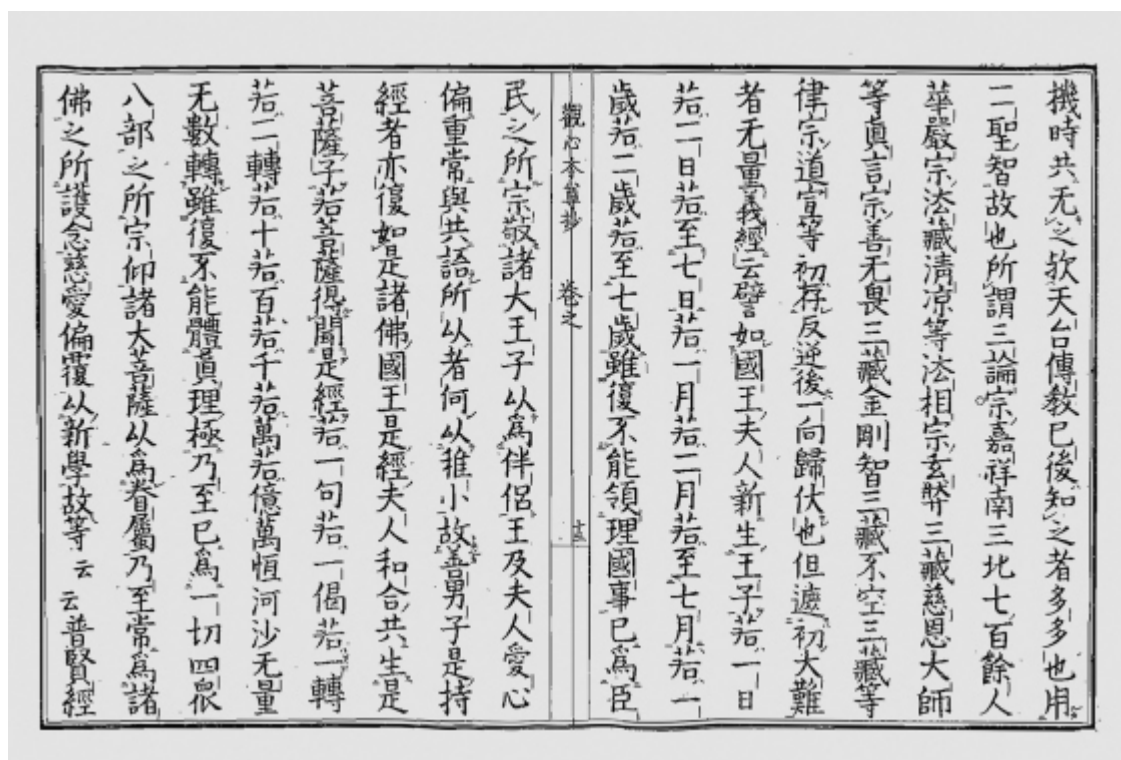 機時共无之欤天台傳教已後知之者多多也用
二聖智故也所謂三論宗嘉祥南三北七百餘人
華嚴宗法藏清凉等法相宗玄弉三藏慈恩大師
等眞言宗善无畏三藏金剛智三藏不空三藏等
律宗道宣等初存反逆後一向歸伏也但遮初大難
者无量義經云譬如國王夫人新生王子若一日
若二日若至七日若一月若二月若至七月若一
歲若二歲若至七歲雖復不能領理國事已爲臣
觀心本尊抄 卷之
民之所宗敬諸大王子以爲伴侶王及夫人愛心
偏重常與共語所以者何以稚小故善男子是持
經者亦復如是諸佛國王是經夫人和合共生是
菩薩子若菩薩得聞是經若一句若一偈若一轉
若二轉若十若百若千若萬若億萬恆河沙无量
无數轉雖復不能體眞理極乃至已爲一切四衆
八部之所宗仰諸大菩薩以爲眷屬乃至常爲諸
佛之所護念慈愛偏覆以新學故等云云普賢經